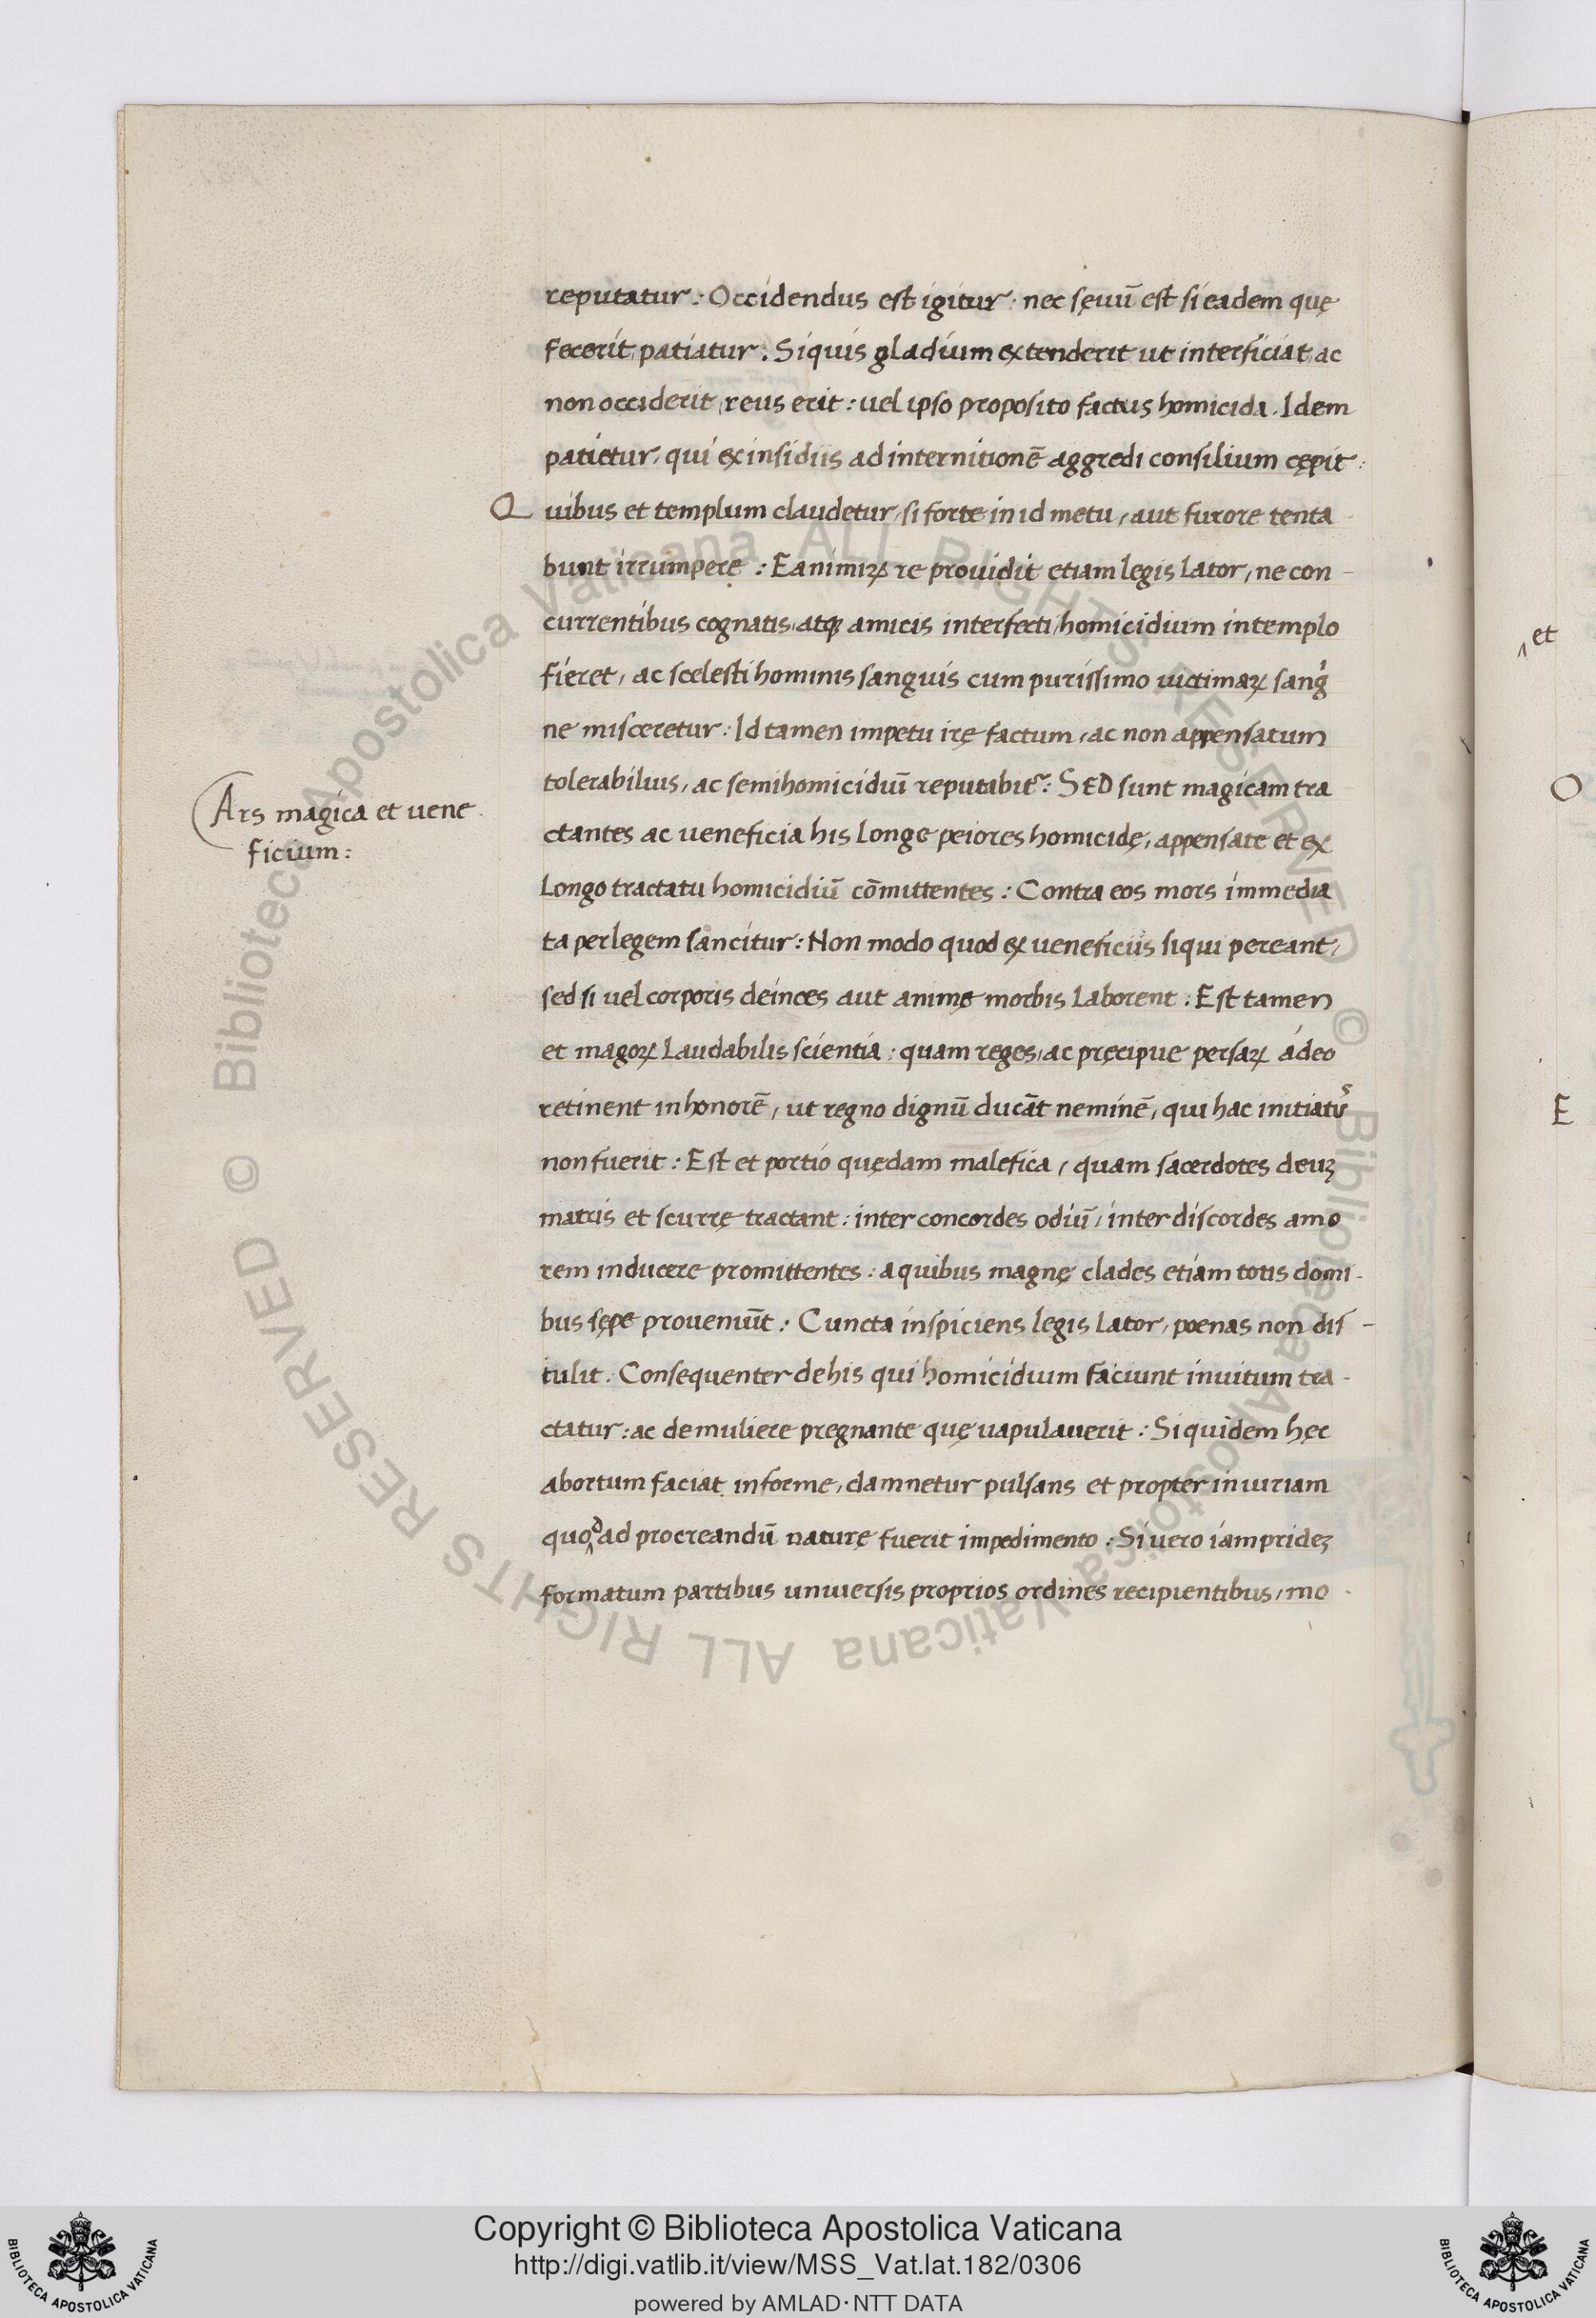 reputatur: Occidendus est igitur· nec sęuū est si eadem quę
fecerit, patiatur: Siquis gladium extenderit ut interficiat, ac
non occiderit, reus erit: uel ipso proposito factus homicida. Idem
patietur, qui ex insidiis ad internitionē aggredi consilium cępit:
Quibus et templum claudetur, si forte in id metu, aut furore tenta
bunt irrumpere: Eanimiꝝ re prouidit etiam legis lator, ne con-
currentibus cognatis, atqꝫ amicis interfecti, homicidium in templo
fieret, ac scelesti hominis sanguis cum purissimo uictimaꝝ sangⁱ
ne misceretur: Id tamen impetu irę factum, ac non appensatum
tolerabilius, ac semihomicidiū reputabitr: SED sunt magicam tra
Ars magica et uene-
ficium:
ctantes ac ueneficia his longe peiores homicidę, appensate et ex
longo tractatu homicidiū cōmittentes: Contra eos mors immedia
ta per legem sancitur: Non modo quod ex ueneficiis siqui pereant,
sed si uel corporis deinces aut animę morbis laborent: Est tamen
et magoꝝ laudabilis scientia: quam reges, ac pręcipue persaꝝ ádeo
retinent in honorē, ut regno dignū ducāt neminē, qui hac initiatꝰ
non fuerit: Est et portio quędam malefica, quam sacerdotes deuꝫ
matris et scurrę tractant: inter concordes odiū, inter discordes amo
rem inducere promittentes: a quibus magnę clades etiam totis domi-
bus sępe proueniūt: Cuncta inspiciens legis lator, poenas non dis-
tulit. Consequenter de his qui homicidium faciunt inuitum tra-
ctatur: ac de muliere pregnante quę uapulauerit: Siquidem hęc
abortum faciat informe, damnetur pulsans et propter iniuriam
quod ad procreandū naturę fuerit impedimento: Si uero iam prideꝫ
formatum partibus uniuersis proprios ordines recipientibus, mo-
et
O
E
© Biblioteca Apostolica Vaticana ALL RIGHTS RESERVED © Biblioteca Apostolica Vaticana ALL RIGHTS RESERVED
Copyright © Biblioteca Apostolica Vaticana
http://digi.vatlib.it/view/MSS_Vat.lat.182/0306
powered by AMLAD·NTT DATA
BIBLIOTECA APOSTOLICA VATICANA
BIBLIOTECA APOSTOLICA VATICANA